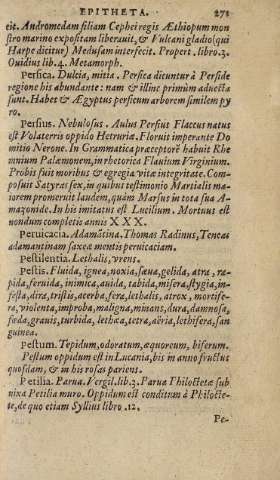 EPITHETA. 271
cit. Andromedam filiam Cephei regis Æthiopum mon
stro marino expositam liberauit, & Vulcani gladio (qui
Harpe dicitur) Medusam interfecit. Propert. libro.3.
Ouidius lib.4. Metamorph.
Persica. Dulcia, mitia. Persica dicuntur à Perside
regione his abundante: nam & illinc primum aduecta
sunt. Habet & Ægyptus persicum arborem similem py
ro.
Persius. Nebulosus. Aulus Persius Flaccus natus
est Volaterris oppido Hetruriæ. Floruit imperante Do
mitio Nerone. In Grammatica præceptorē habuit Rhe
mnium Palæmonem, in rhetorica Flauium Virginium.
Probis fuit moribus & egregia vitæ integritate. Com-
posuit Satyras sex, in quibus testimonio Martialis ma-
iorem promeruit laudem, quàm Marsus in tota sua A-
mazonide. In his imitatus est Lucilium. Mortuus est
nondum completis annis XXX.
Peruicacia. Adamātina. Thomas Radinus, Tenax
adamantinam saxeæ mentis peruicaciam.
Pestilentia. Lethalis, vrens.
Pestis. Fluida, ignea, noxia, sæua, gelida, atra, ra-
pida, feruida, inimica, auida, tabida, misera, stygia, in-
festa, dira, tristis, acerba, fera, lethalis, atrox, mortife-
ra, violenta, improba, maligna, minans, dura, damnosa,
fœda, grauis, turbida, lethæa, tetra, aëria, lethifera, san
guinea.
Pestum. Tepidum, odoratum, æquoreum, biferum.
Pestum oppidum est in Lucania, bis in anno fructus
quosdam, & in his rosas pariens.
Petilia. Parua. Vergil. lib.3. Parua Philoctetæ sub
nixa Petilia muro. Oppidum est conditum à Philocte-
te, de quo etiam Syllius libro .12.
Pe-